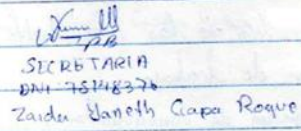 SECRETARIA
DNI 75148376
Zaida Yaneth Ccapa Roque